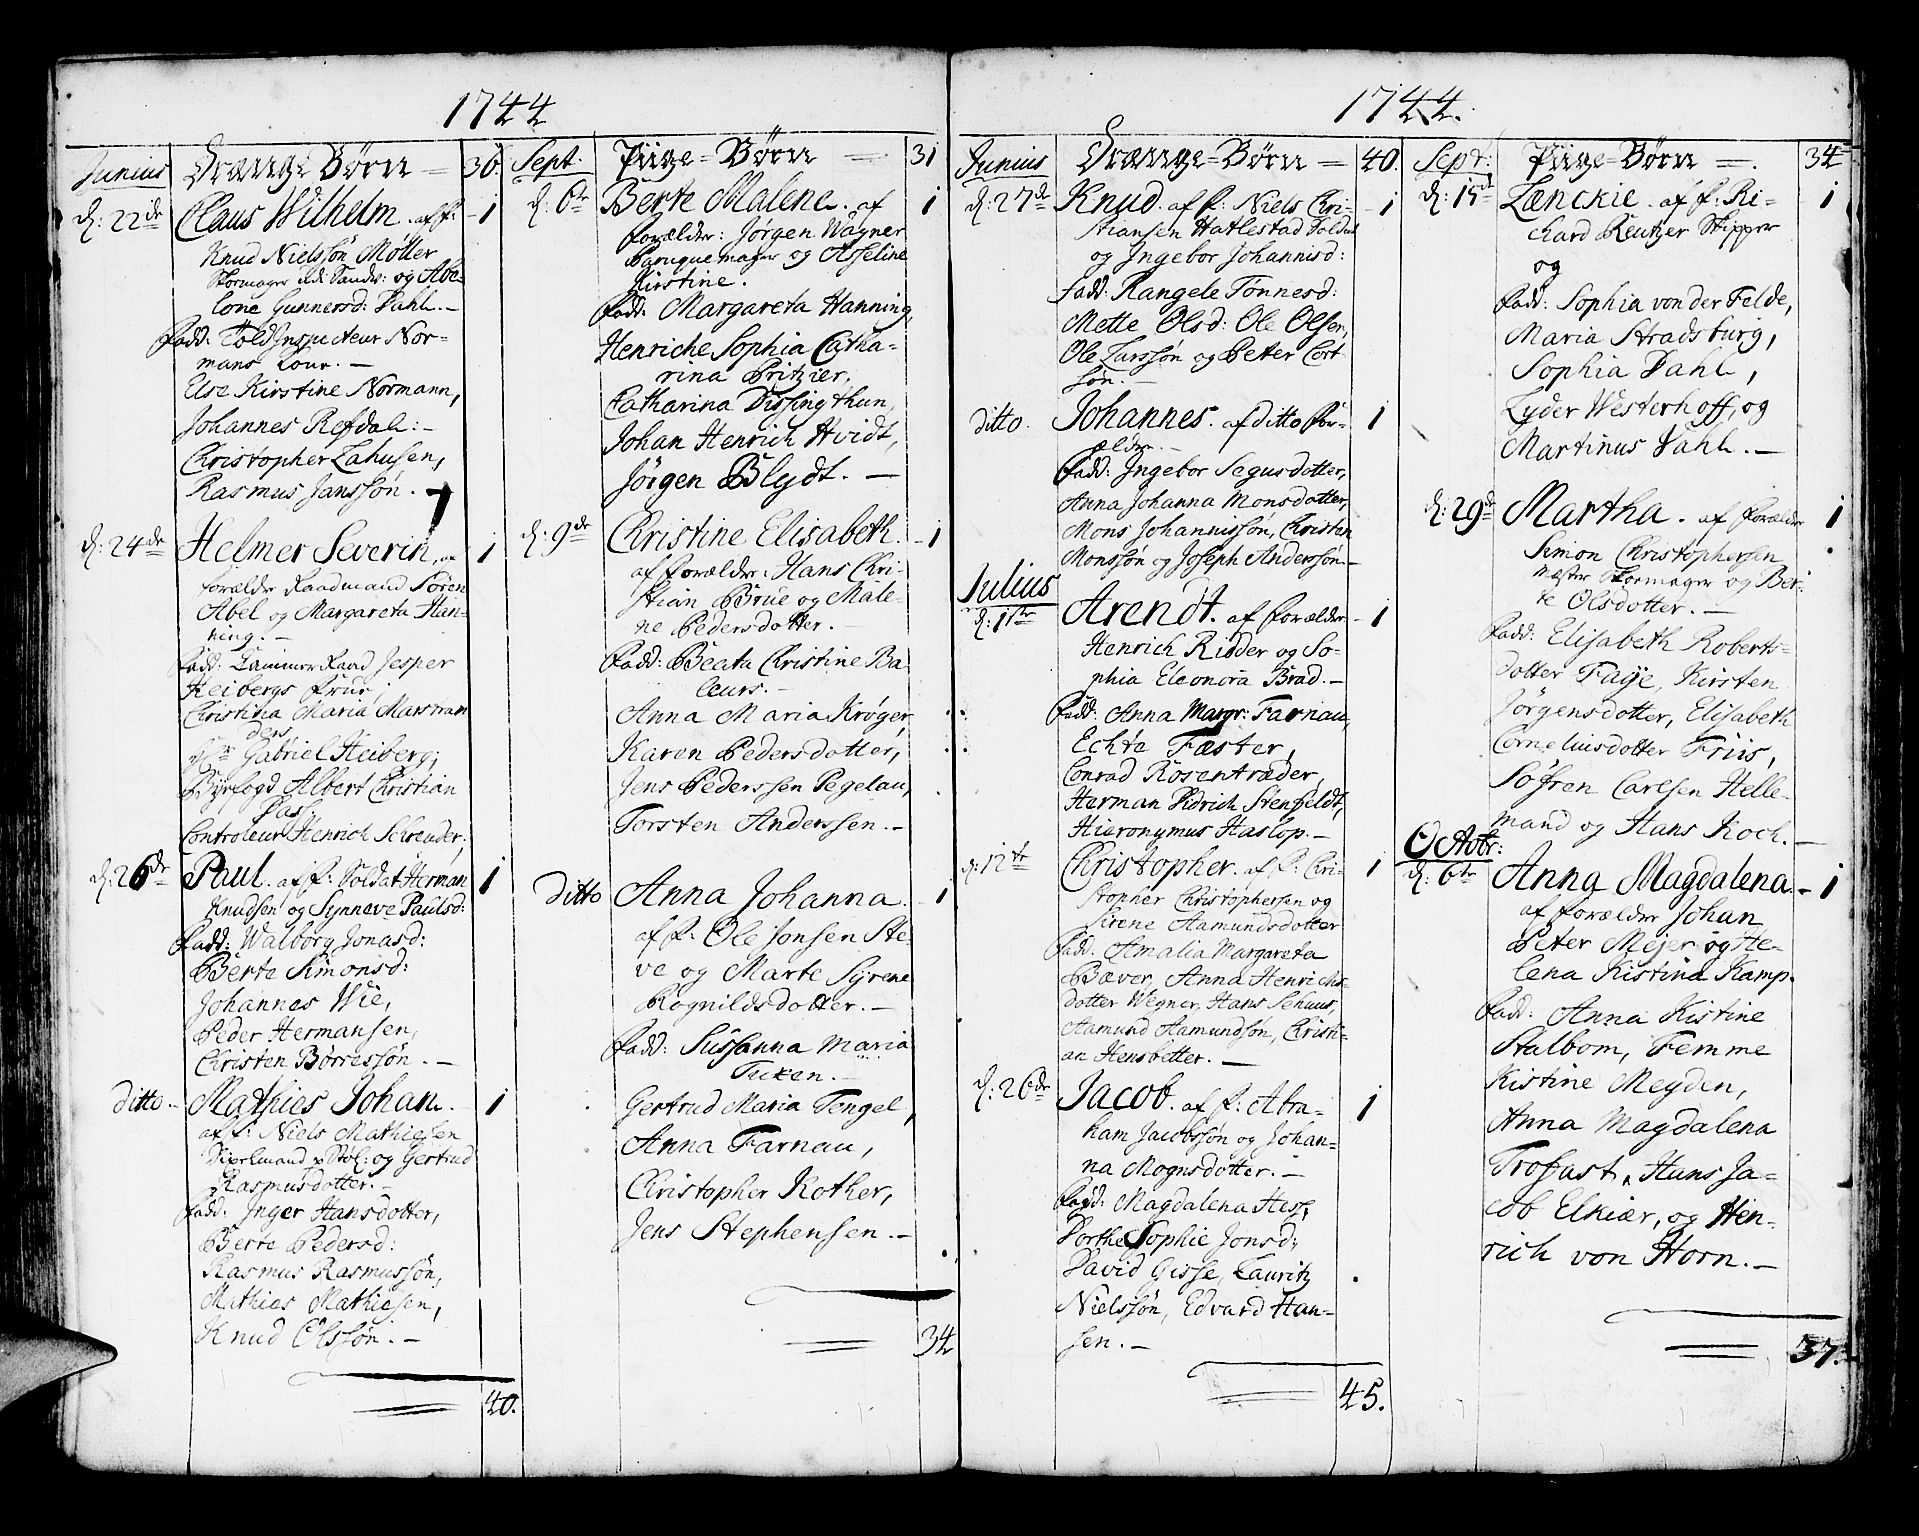 1744
Junius
Drænge Børn
36.
d: 22de
Claus Wilhelm. af f: 1
Knud Nielssøn Møller
Skomager og Abe-
lone Gunnersd: Dahl. -
fadd: Told Inspecteur Nor-
mans
Else Kirstine Normann,
Johannes Refdal: -
Christopher Lahusen,
Rasmus Janssøn. -
d: 24de
Helmer Severin, af 1
forælder Raadmand Søren
Abel og Margareta Han-
ning. -
fadd: Cammer Raad Jesper
Heibergs Frue,
Christina Maria Marstran
ders
Hr Gabriel Heiberg;
Byefogd Albert Christian
Dass,
Controleur Henrich Schreuder.
d: 26de
Paul. af f: Soldat Herman 1
Knudsen og Synneve Paulsd:
fadd: Walborg Jonasd:
Berte Simonsd:
Johannes Wie,
Peder Hermansen,
Christen Børressøn. -
ditto -
Mathies Johan. 1
af f: Niels Mathiesen
og Gertrud
Rasmusdotter. -
fadd: Inger Hansdotter,
Berte Pedersd:
Rasmus Rasmussøn,
Mathies Mathiesen,
Knud Olssøn. -
40.
Sept.
Piige-Børn
31
d: 6te
Berte Malene. af 1
forælder: Jørgen Wagner
Paruquemager og Asseline
Kirstine.
fadd: Margareta Hanning,
Henriche Sophia Catha-
rina Pritzier,
Catharina Dissingthun,
Johan Henrich Hvidt,
Jørgen Blydt. -
d: 9de
Christine Elisabeth. - 1
af forælder: Hans Chri-
stian Brue og Male-
ne Pedersdotter. -
fadd: Beata Christine Ba
leurs. -
Anna Maria Krøger,
Karen Pedersdotter,
Jens Pederssen Pegelau,
Torsten Anderssen. -
ditto
Anna Johanna. 1
af f: Ole Jonsen Ste
ve og Marte Syrene
Rognildsdotter. -
fadd: Sussanna Maria
Tuxen. -
Gertrud Maria Tengel,
Anna Farnau,
Christopher Kother,
Jens Stephensen. -
34
1744.
Junius
Drænge-Børn
40.
d: 27de
Knud. af f: Niels Chri- 1
stiansen Hatlestad Soldat
og Ingebor Johannisd:
fadd: Rangele Tønnesd:
Mette Olsd: Ole Olsen,
Ole Larssøn og Peter Cort
søn. -
ditto.
Johannes. af ditto for- 1
ælder. -
fadd: Ingebor Segusdotter,
Anna Johanna Monsdotter,
Mons Johannissøn, Christen
Monssøn og Joseph Anderssøn -
Julius
d: 11te
Arendt. af forælder - 1
Henrich Ridder og So-
phia Eleonora Brad. -
fadd: Anna Margr: Farnau,
Echte Fæster,
Conrad Rosentræder,
Herman Didrich Stenfeldt,
Hieronymus Haslop. -
d: 12te
Christopher. af f: Chri- 1
stopher Christophersen og
Sirene Aamundsdotter
fadd: Amalia Margareta
Bæver, Anna Henrichs-
dotter Wegner, Hans Schuus,
Aamund Aamundsøn, Christi-
an Hensbetter. -
d: 26de
Jacob. af f: Abra- 1
ham Jacobssøn og Johan-
na Mognsdotter. -
fadd: Magdalena Hess,
Dorthe Sophie Jonsd:
David Gisse, Lauritz
Nielssøn, Edvard Han-
sen. -
45.
Sept:
Piige-Børn
34
d: 15d
Lænckie. af f: Ri- 1
chard Reutzer Skipper
og
fadd: Sophia von der Felde,
Maria Stradsburg,
Sophia Dahl,
Lyder Westerhoff, og
Martinus Dahl. -
d: 29de
Martha. af forælder 1
Simon Christophersen
Mester Skomager og Ber-
te Olsdotter. -
fadd: Elisabeth Roberts-
dotter Faije, Kirsten
Jørgensdotter, Elisabeth
Corneliusdotter Friis,
Søfren Carlsen Helle-
mand og Hans Koch. -
Octobr:
d: 6te
Anna Magdalena - 1
af forælder Johan
Peter Mejer og He-
lena Kistina Kamp.
fadd: Anna Kistine
Stalbom, Femme
Kistine Meyden,
Anna Magdalena
Trofast, Hans Ja-
cob Elkiær, og Hen-
rich von Horn. -
37.